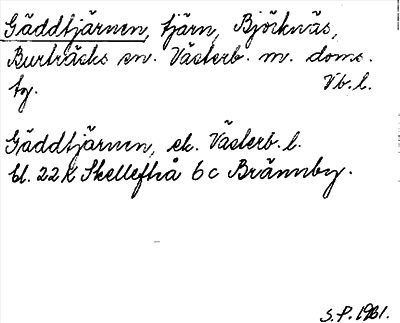 Gäddtjärnen, tjärn, Björknäs,
Burträsks sn. Västerb. m. doms.
tg. Vb. l.
Gäddtjärnen, ek. Västerb. l.
bl. 22K Skellefteå 6c Brännby.
S.P. 1961.